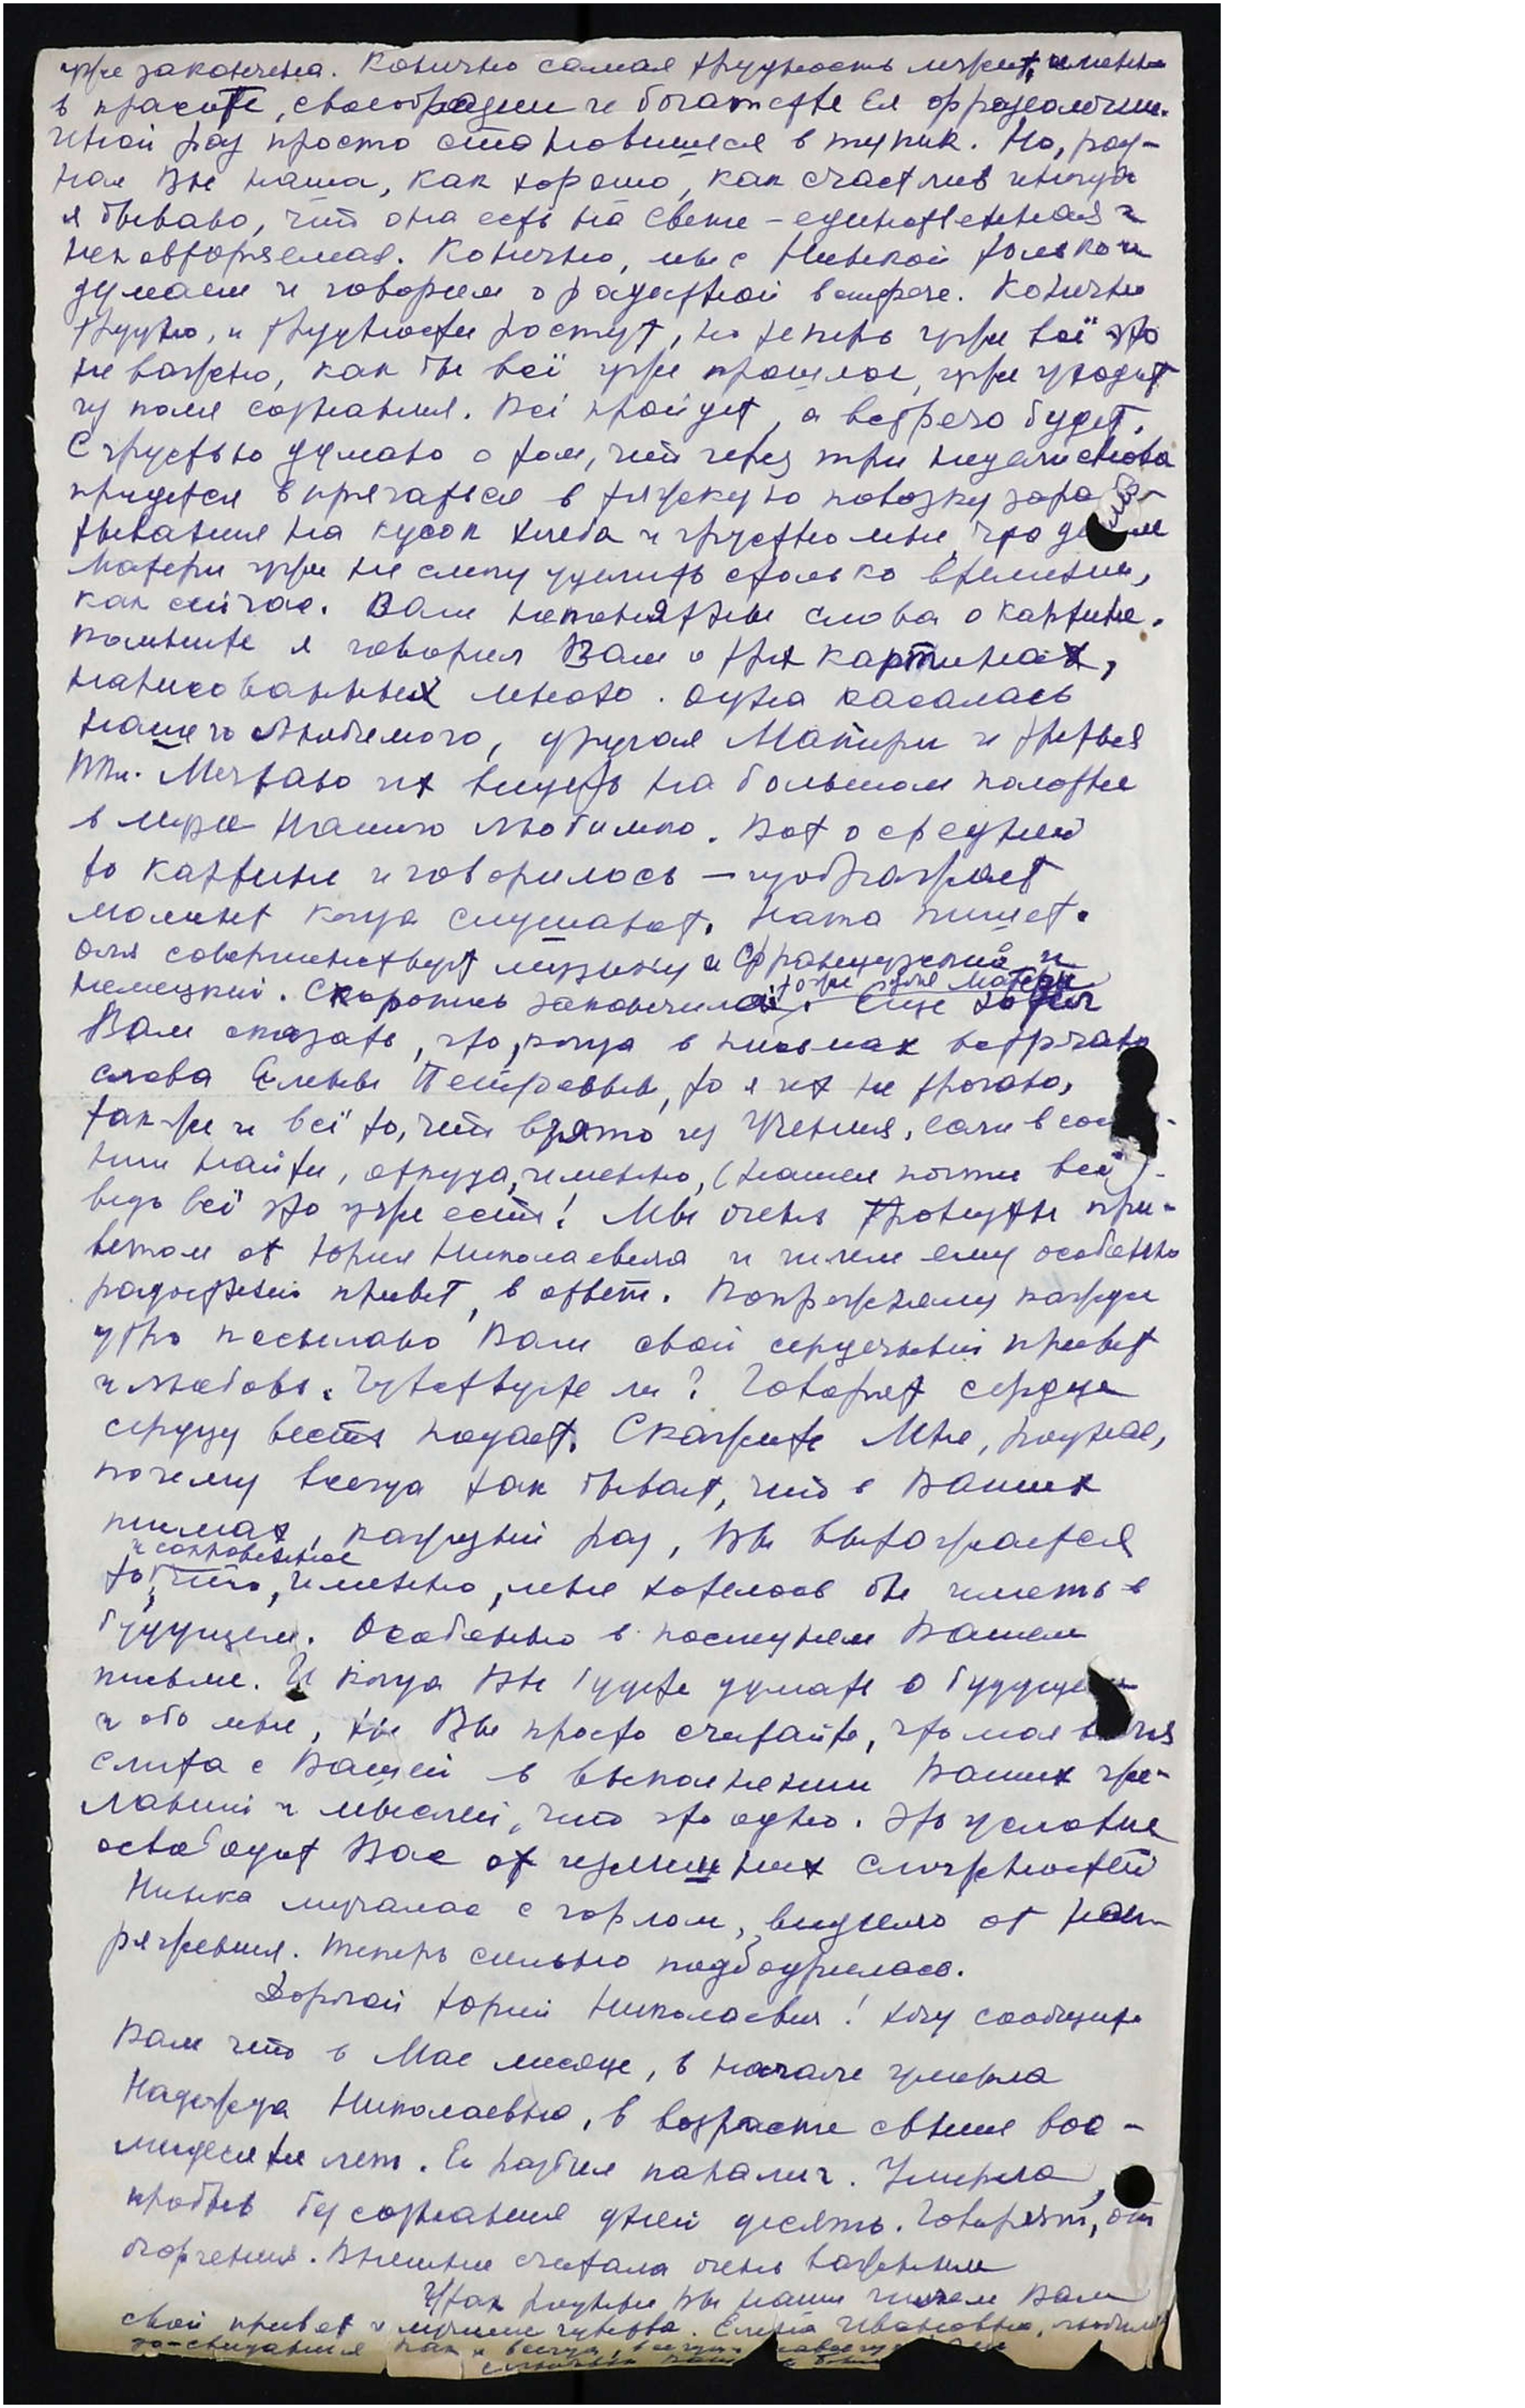 уже закончена. Конечно самая трудность лежит, именно
в красоте, своеобразии и богатстве Ея фразеологии.
Иной раз просто становишься в тупик. Но, род-
ная Вы наша, как хорошо, как счастлив иногда
я бываю, что она есть на свете – единственная и
неповторяемая. Конечно, мы с Нинкой только и
думаем и говорим о радостной встрече. Конечно
трудно, и трудности растут, но теперь уже всё это
не важно, как бы всё уже прошлое, уже уходит
из поля сознания. Всё пройдет, а встреча будет.
С грустью думаю о том, что через три недели снова
придется впрягаться в тяжкую повозку зараб-
тывания на кусок хлеба и грустно мне, что
Матери уже не смогу уделить столько времени,
как сейчас. Вам непонятны слова о картине.
Помните я говорил Вам о трех картинах,
написованных мною. Одна касалась
нашего Любимого, другая Матери и третья
Мечтаю их видеть на большом полотне
в мире Нашего Любимого. Вот о средней
то картине и говорилось — изображает
момент когда слушают. Ната пишет.
Оля совершенствует музыку и французский и
немецкий. Скоропись закончила. Еще хотел
тоже для Матери
Вам сказать, что, когда в письмах встречаю
слова Елены Петровны, то я их не трогаю,
также и всё то, что взято из Учения, если в сос-
нии найти, откуда, именно, (нашел почти всё) -
ведь всё это уже есть! Мы очень тронуты при-
ветом от Юрия Николаевича и шлем ему особенно
радостный привет, в ответ. Попрежнему каждое
утро посылаю Вам свой сердечный привет
и любовь. Чувствуете ли? Говорят сердце
сердцу весть подает. Скажите Мне, родная,
почему всегда так бывает, что в Ваших
письмах, каждый раз, Вы
и сокровенное
то, что, именно, мне хотелось бы иметь в
будущем. Особенно в последнем Вашем
письме. И когда Вы будете думать о будущем
и обо мне, то Вы просто считайте, что моя воля
слита с Вашей в выполнении Ваших же-
ланий и мыслей, что это одно. Это условие
освободит Вас от излишних сложностей
Нинка мучалась с горлом, видимо от нап-
ряжения. Теперь сильно подбодрилась.
Дорогой Юрий Николаевич! Хочу сообщить
Вам что в Мае месяце, в начале умерла
Надежда Николаевна, в возрасте свыше вос-
мидесяти лет. Ее разбил паралич. Умерла,
пробыв без сознания дней десять. Говорят, от
огорчения. Внешние считала очень важными
Итак родные Вы наши шлем Вам
свой привет и лучшие чувства. Елена Ивановна, любимая
до-свидания как и всегда, всегда